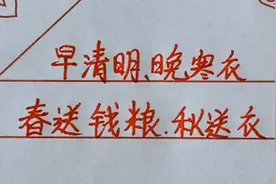 早清明、晚寒衣
春送钱粮.秋送衣